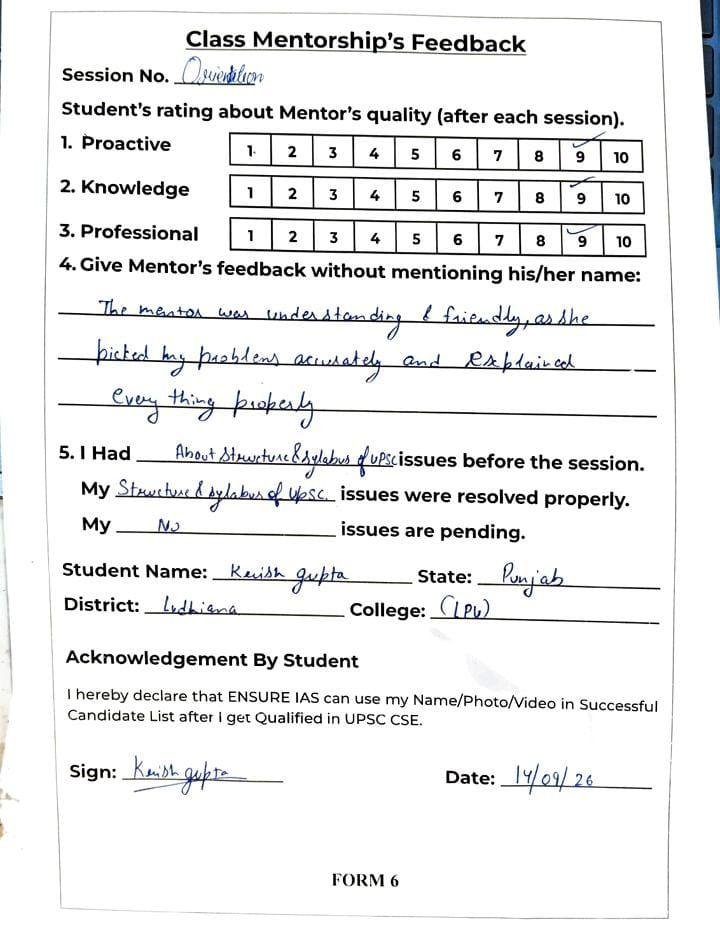 Class Mentorship's Feedback
Session No. Orientation
Student's rating about Mentor's quality (after each session).
1. Proactive 1 2 3 4 5 6 7 8 9 10
2. Knowledge 1 2 3 4 5 6 7 8 9 10
3. Professional 1 2 3 4 5 6 7 8 9 10
4. Give Mentor's feedback without mentioning his/her name:
The mentor was understanding & friendly, as she
picked my problems accurately and explained
every thing properly
5. I Had About Structure & Sylabus of UPSC issues before the session.
My Structure & sylabus of UPSC issues were resolved properly.
My No issues are pending.
Student Name: Krish gupta State: Punjab
District: Ludhiana College: (LPU)
Acknowledgement By Student
I hereby declare that ENSURE IAS can use my Name/Photo/Video in Successful
Candidate List after i get Qualified in UPSC CSE.
Sign: Krish gupta Date: 14/09/26
FORM 6